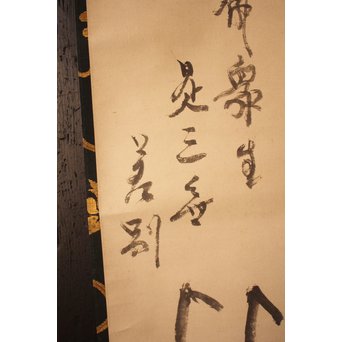 佛衆生
是三無
差別